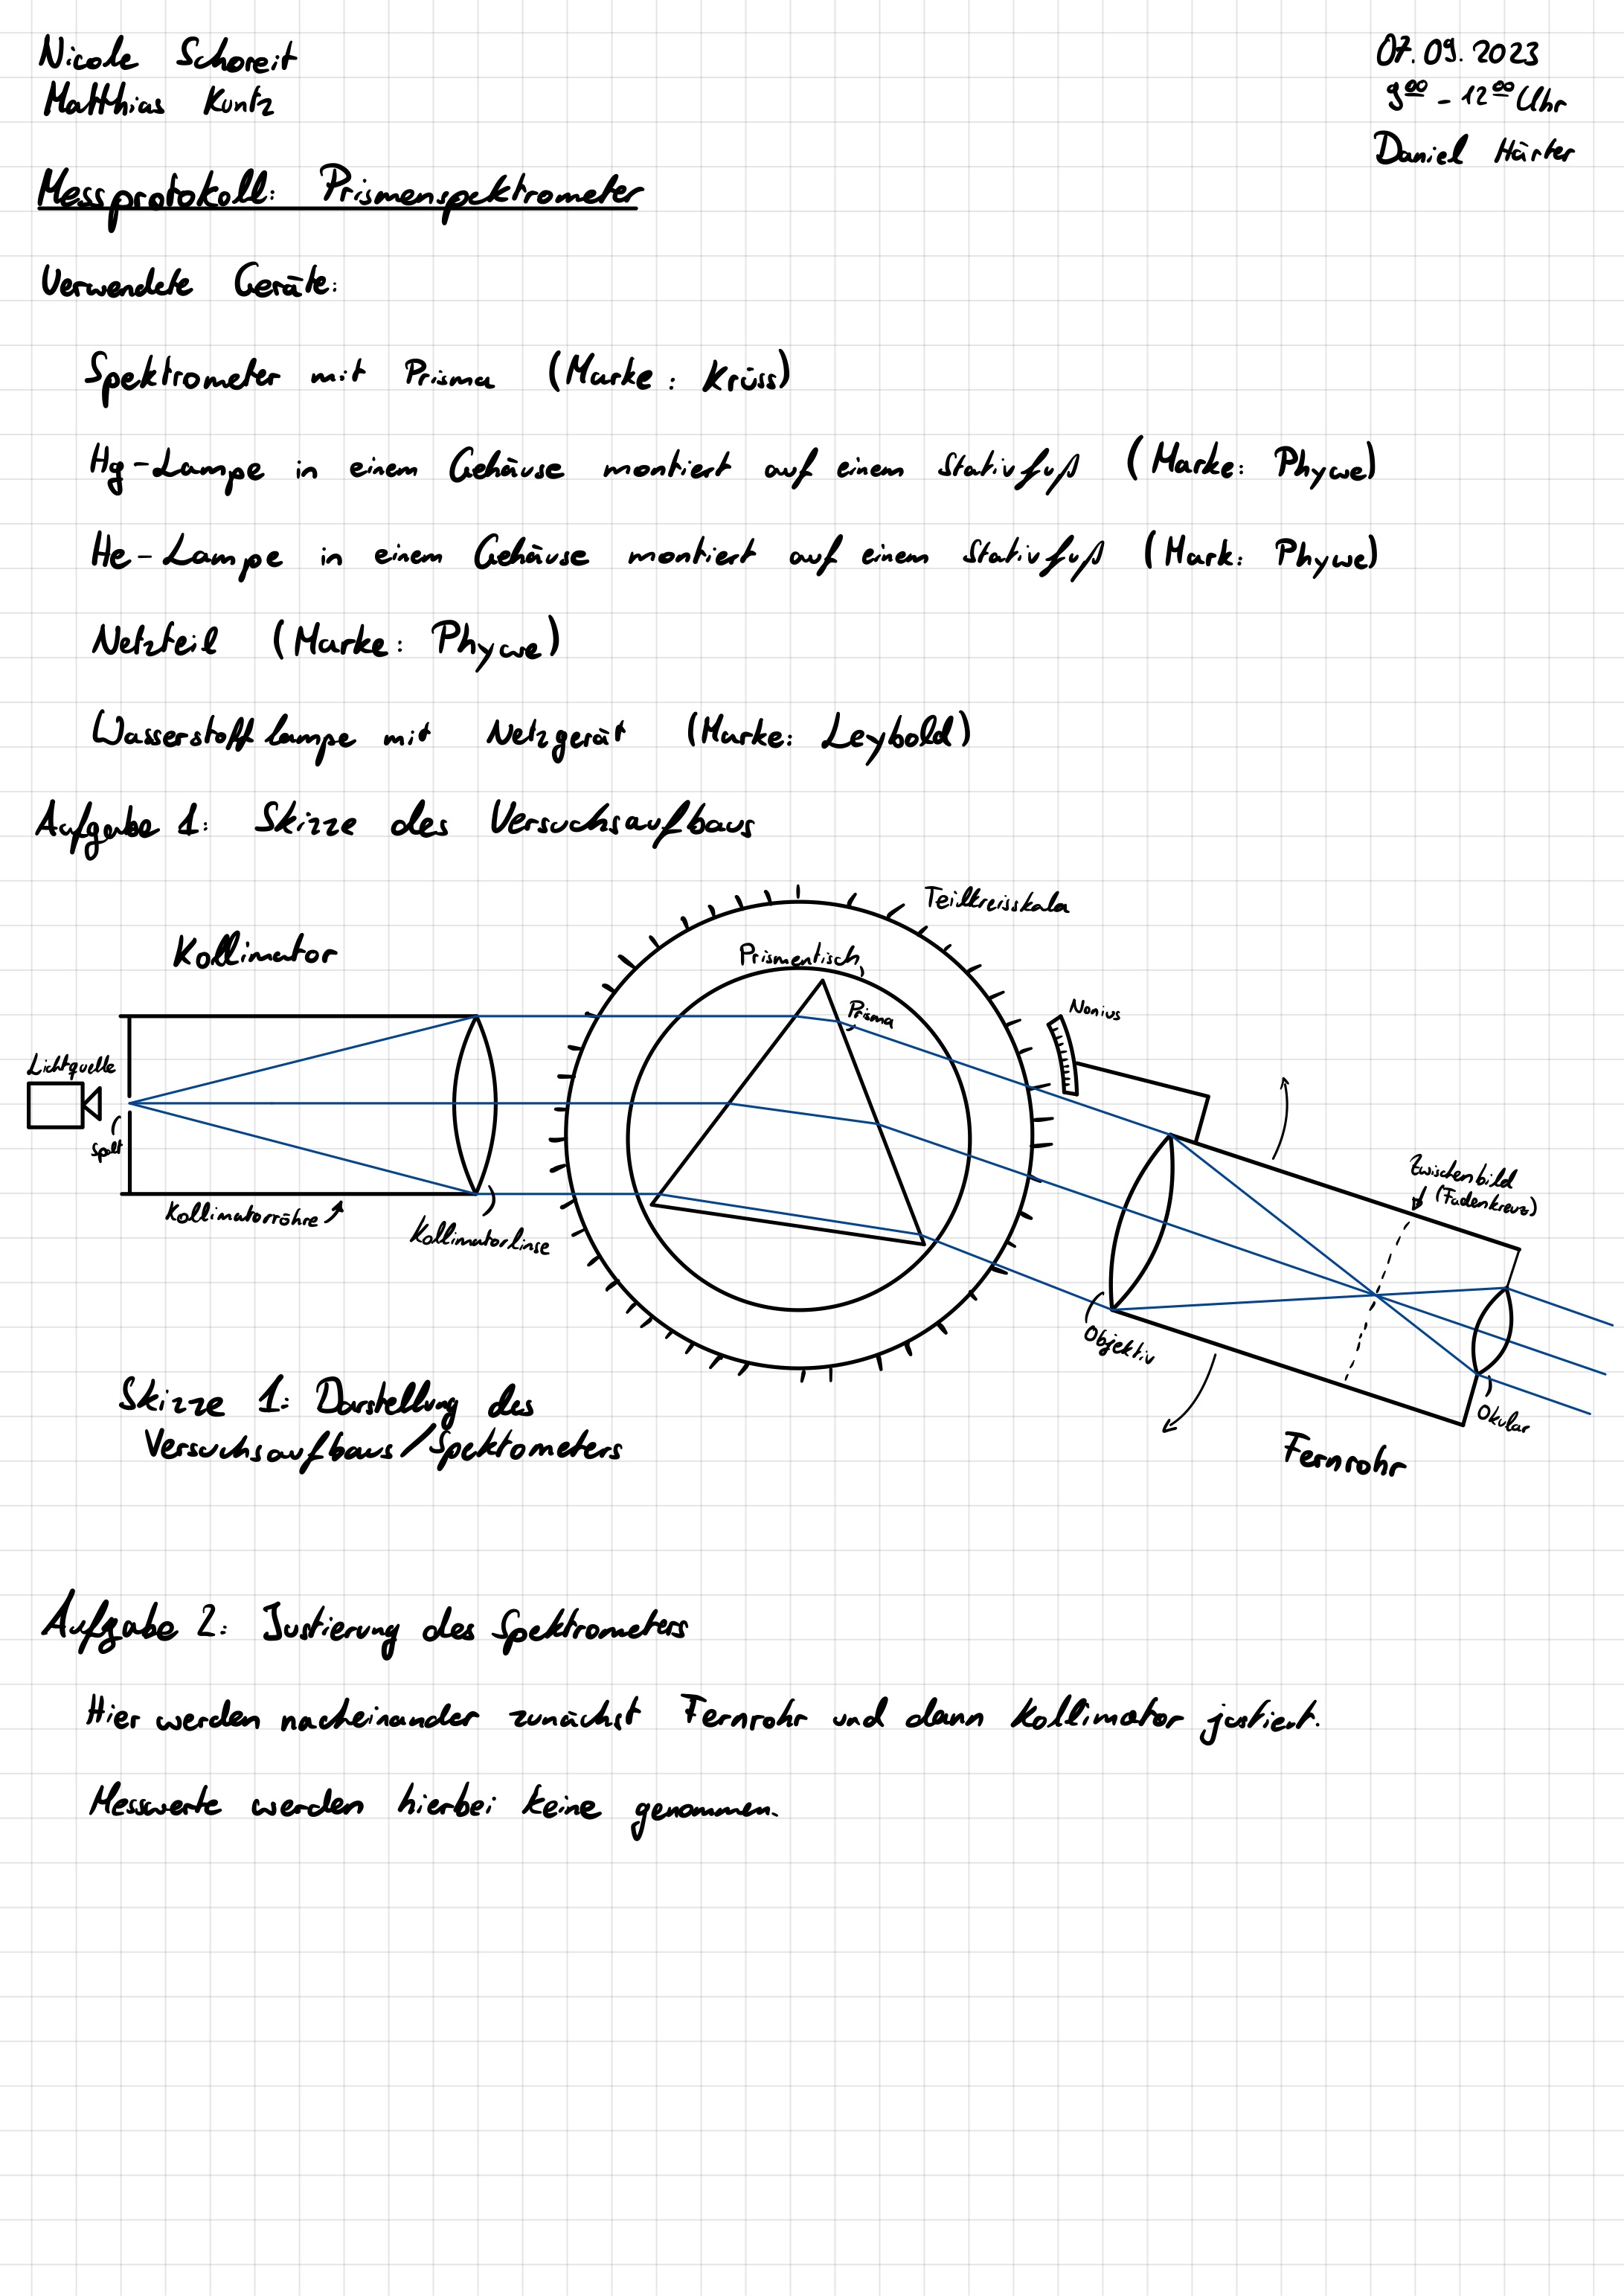 Nicole Schoreit
Matthias Kuntz
07.09.2023
9⁰⁰ - 12⁰⁰ Uhr
Daniel Härter
Messprotokoll: Prismenspektrometer
Verwendete Geräte:
Spektrometer mit Prisma (Marke: Krüss)
Hg-Lampe in einem Gehäuse montiert auf einem Stativfuß (Marke: Phywe)
He-Lampe in einem Gehäuse montiert auf einem Stativfuß (Mark: Phywe)
Netzteil (Marke: Phywe)
Wasserstofflampe mit Netzgerät (Marke: Leybold)
Aufgabe 1: Skizze des Versuchsaufbaus
Teilkreisskala
Kollimator
Prismentisch
Prisma
Nonius
Lichtquelle
Spalt
Zwischenbild
(Fadenkreuz)
Kollimatorröhre
Kollimatorlinse
Objektiv
Okular
Fernrohr
Skizze 1: Darstellung des
Versuchsaufbaus/Spektometers
Aufgabe 2: Justierung des Spektrometers
Hier werden nacheinander zunächst Fernrohr und dann Kollimator justiert.
Messwerte werden hierbei keine genommen.